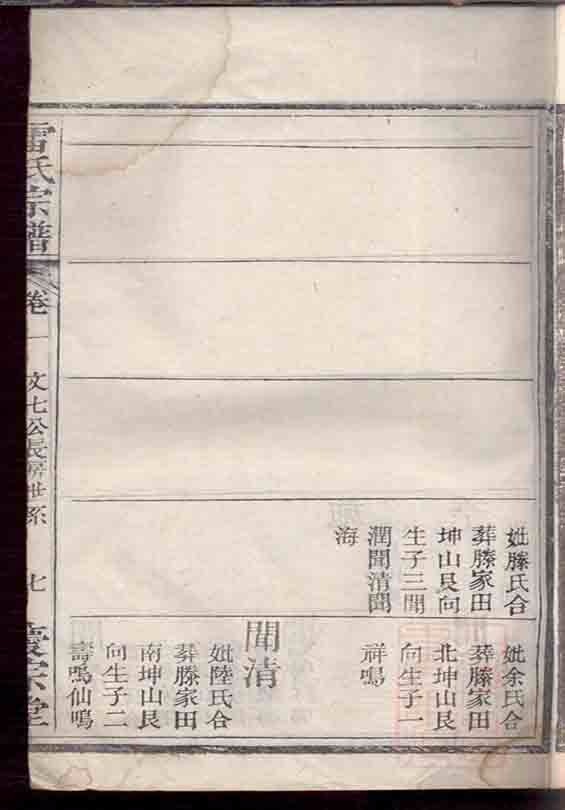 妣滕氏合
葬滕家田
坤山艮向
生子三聞
潤聞清聞
海
妣余氏合
葬滕家田
北坤山艮
向生子一
祥鳴
聞清
妣陸氏合
葬滕家田
南坤山艮
向生子二
壽鳴仙鳴
雷氏宗譜
卷一
文七公長房世系
七
愛宗堂